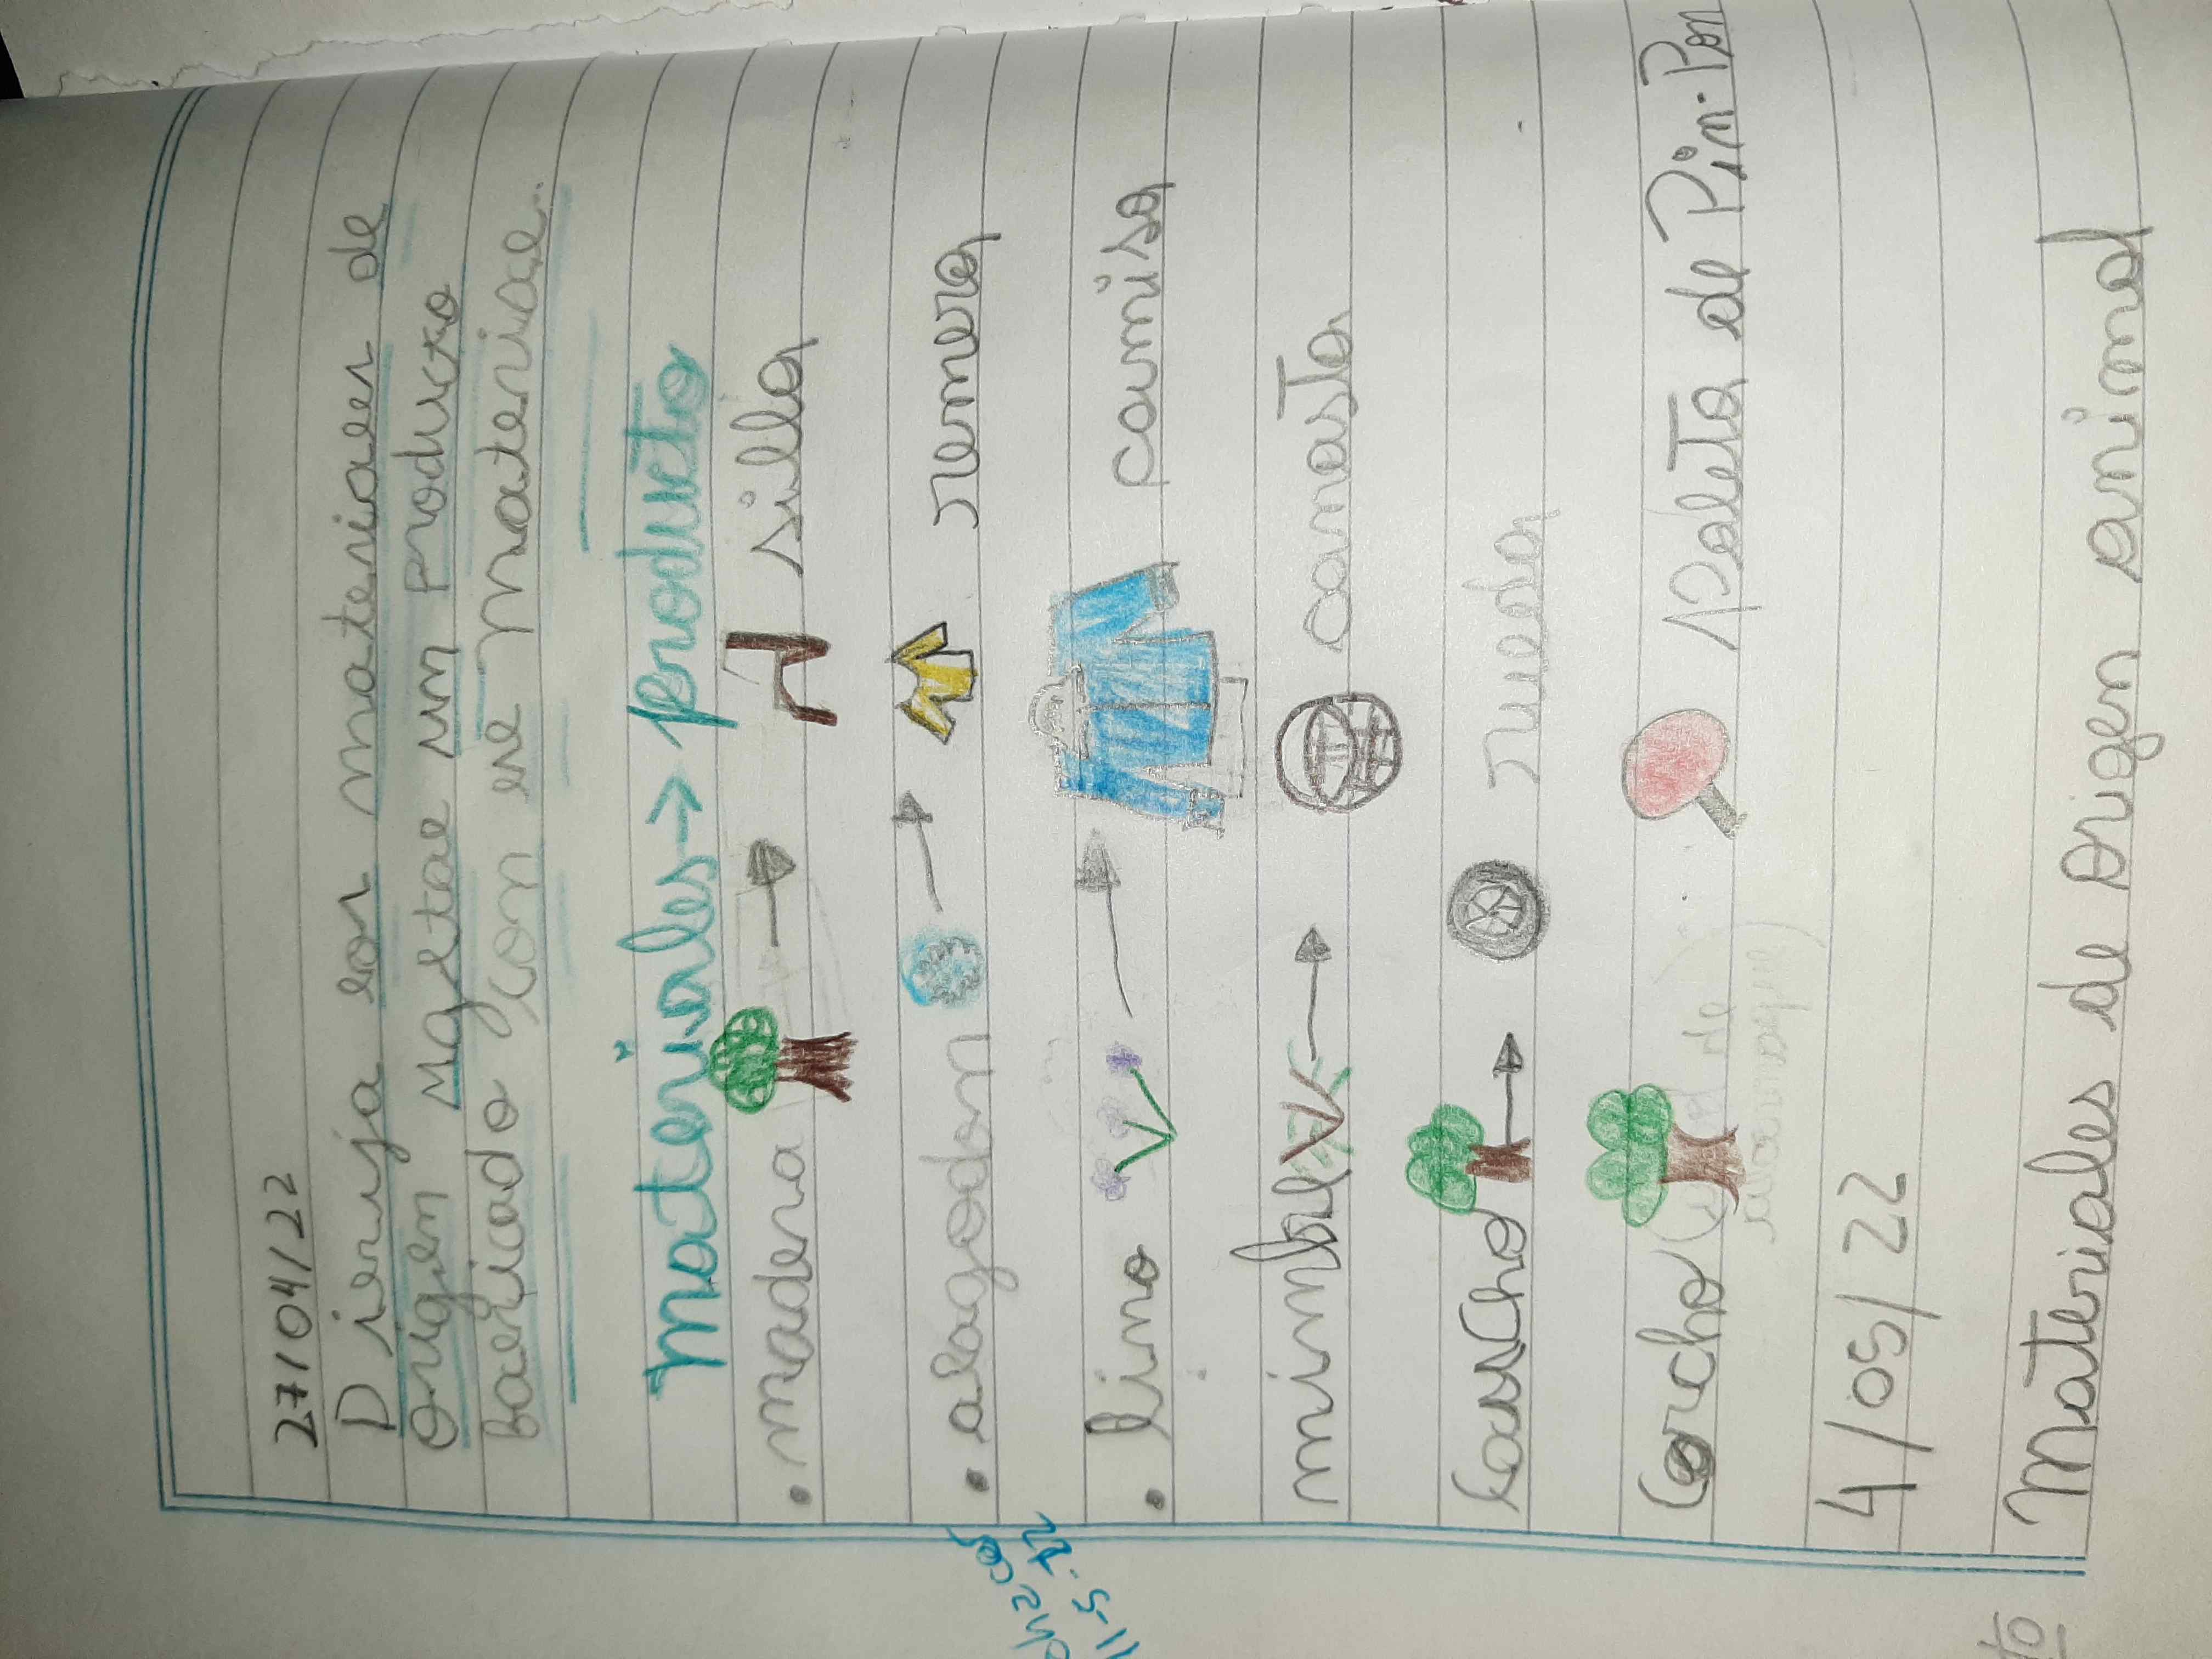 27/04/22
Dibuja los materiales de
origen vegetal un producto
fabricado con ese material.
materiales → producto
• madera → silla
• alagodon → remera
• lino → camisa
mimbre → canasta
caucho → rueda
corcho paleta de Pin-Pon
4/05/22
Materiales de origen animal
11-5-22
to